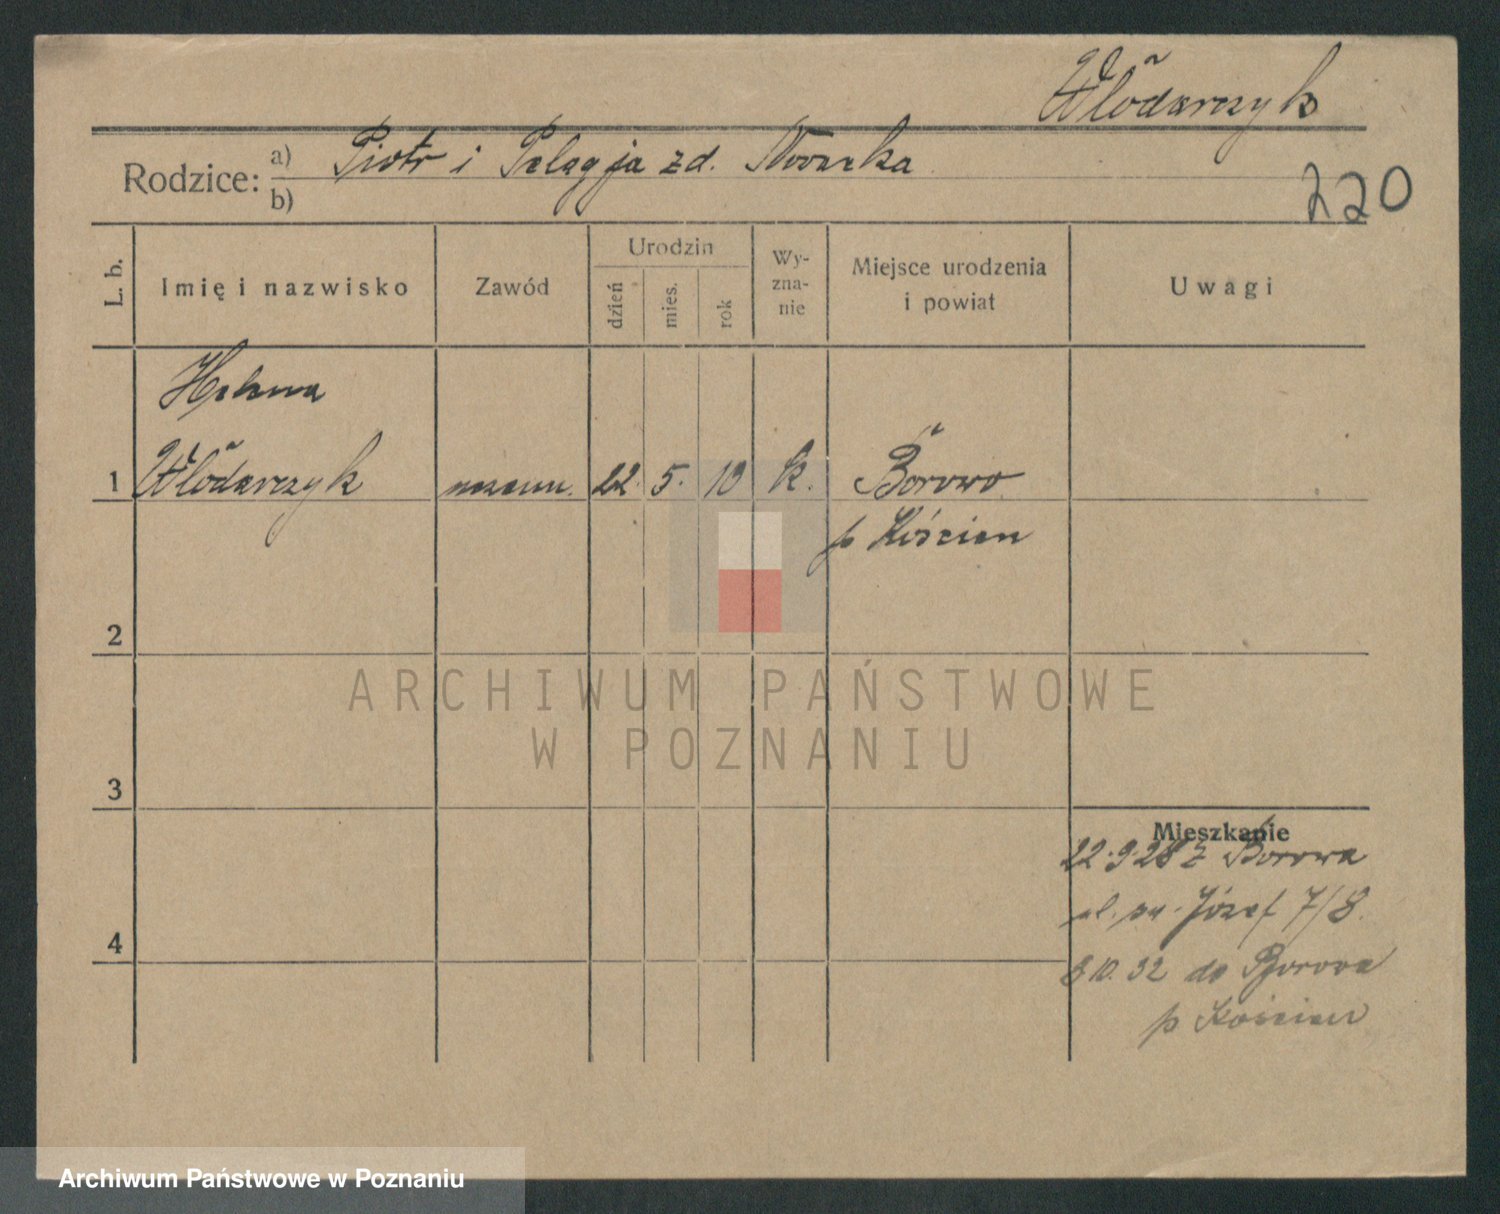 Włodarczyk
Rodzice: a) Piotr i Pelagja zd. Nowacka
b)
220
L. b.
Imię i nazwisko
Zawód
Urodzin
dzień
mies.
rok
Wy-
zna-
nie
Miejsce urodzenia
i powiat
Uwagi
Helena
1 Włodarczyk 22. 5. k. Borowo
p Kościan
2
3
4
Mieszkanie
22.9.28 z Borowa
ul. św. Józef 7/8.
8.10.32 do Borowa
p Kościan
ARCHIWUM PAŃSTWOWE
W POZNANIU
Archiwum Państwowe w Poznaniu